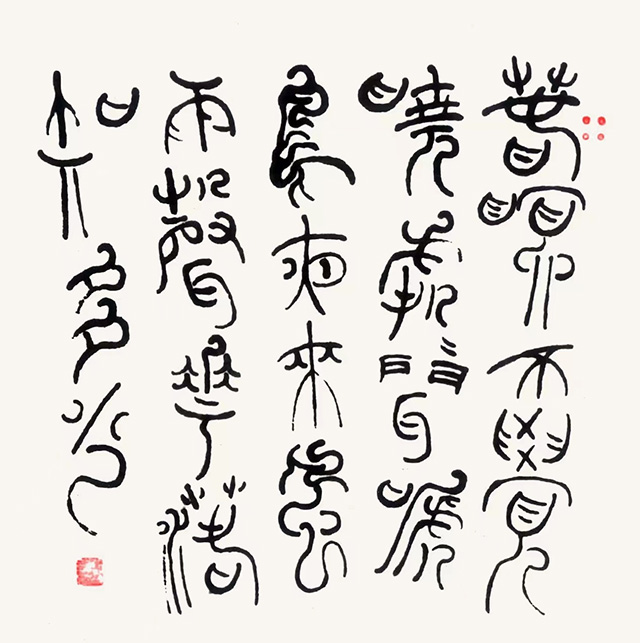 春眠不覺
曉處々聞啼
鳥夜來風
雨聲華落
知多少